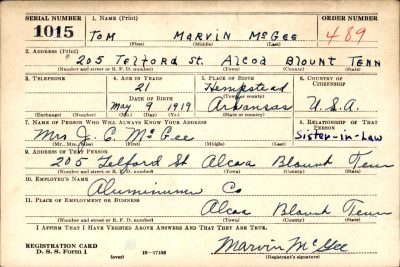 SERIAL NUMBER 1. NAME (Print) ORDER NUMBER
1015 TOM MARVIN McGEE 489
(First) (Middle) (Last)
2. ADDRESS (Print)
205 TELFORD St. ALCOA BLOUNT TENN
(Number and street or R. F. D. number) (Town) (County) (State)
3. TELEPHONE 4. AGE IN YEARS 5. PLACE OF BIRTH 6. COUNTRY OF CITIZENSHIP
21 Hempstead
DATE OF BIRTH (Town or county)
May 9 1919 Arkansas U.S.A.
(Exchange) (Number) (Mo.) (Day) (Yr.) (State or country)
7. NAME OF PERSON WHO WILL ALWAYS KNOW YOUR ADDRESS 8. RELATIONSHIP OF THAT PERSON
Mrs J. C. McGee Sister-in-Law
(Mr., Mrs., Miss) (First) (Middle) (Last)
9. ADDRESS OF THAT PERSON
205 Telford St Alcoa Blount Tenn
(Number and street or R. F. D. number) (Town) (County) (State)
10. EMPLOYER'S NAME
Aluminum Co
11. PLACE OF EMPLOYMENT OR BUSINESS
Alcoa Blount Tenn
(Number and street or R. F. D. number) (Town) (County) (State)
I AFFIRM THAT I HAVE VERIFIED ABOVE ANSWERS AND THAT THEY ARE TRUE.
REGISTRATION CARD
D. S. S. Form 1 (over) 16-17105 Marvin McGee
(Registrant's signature)